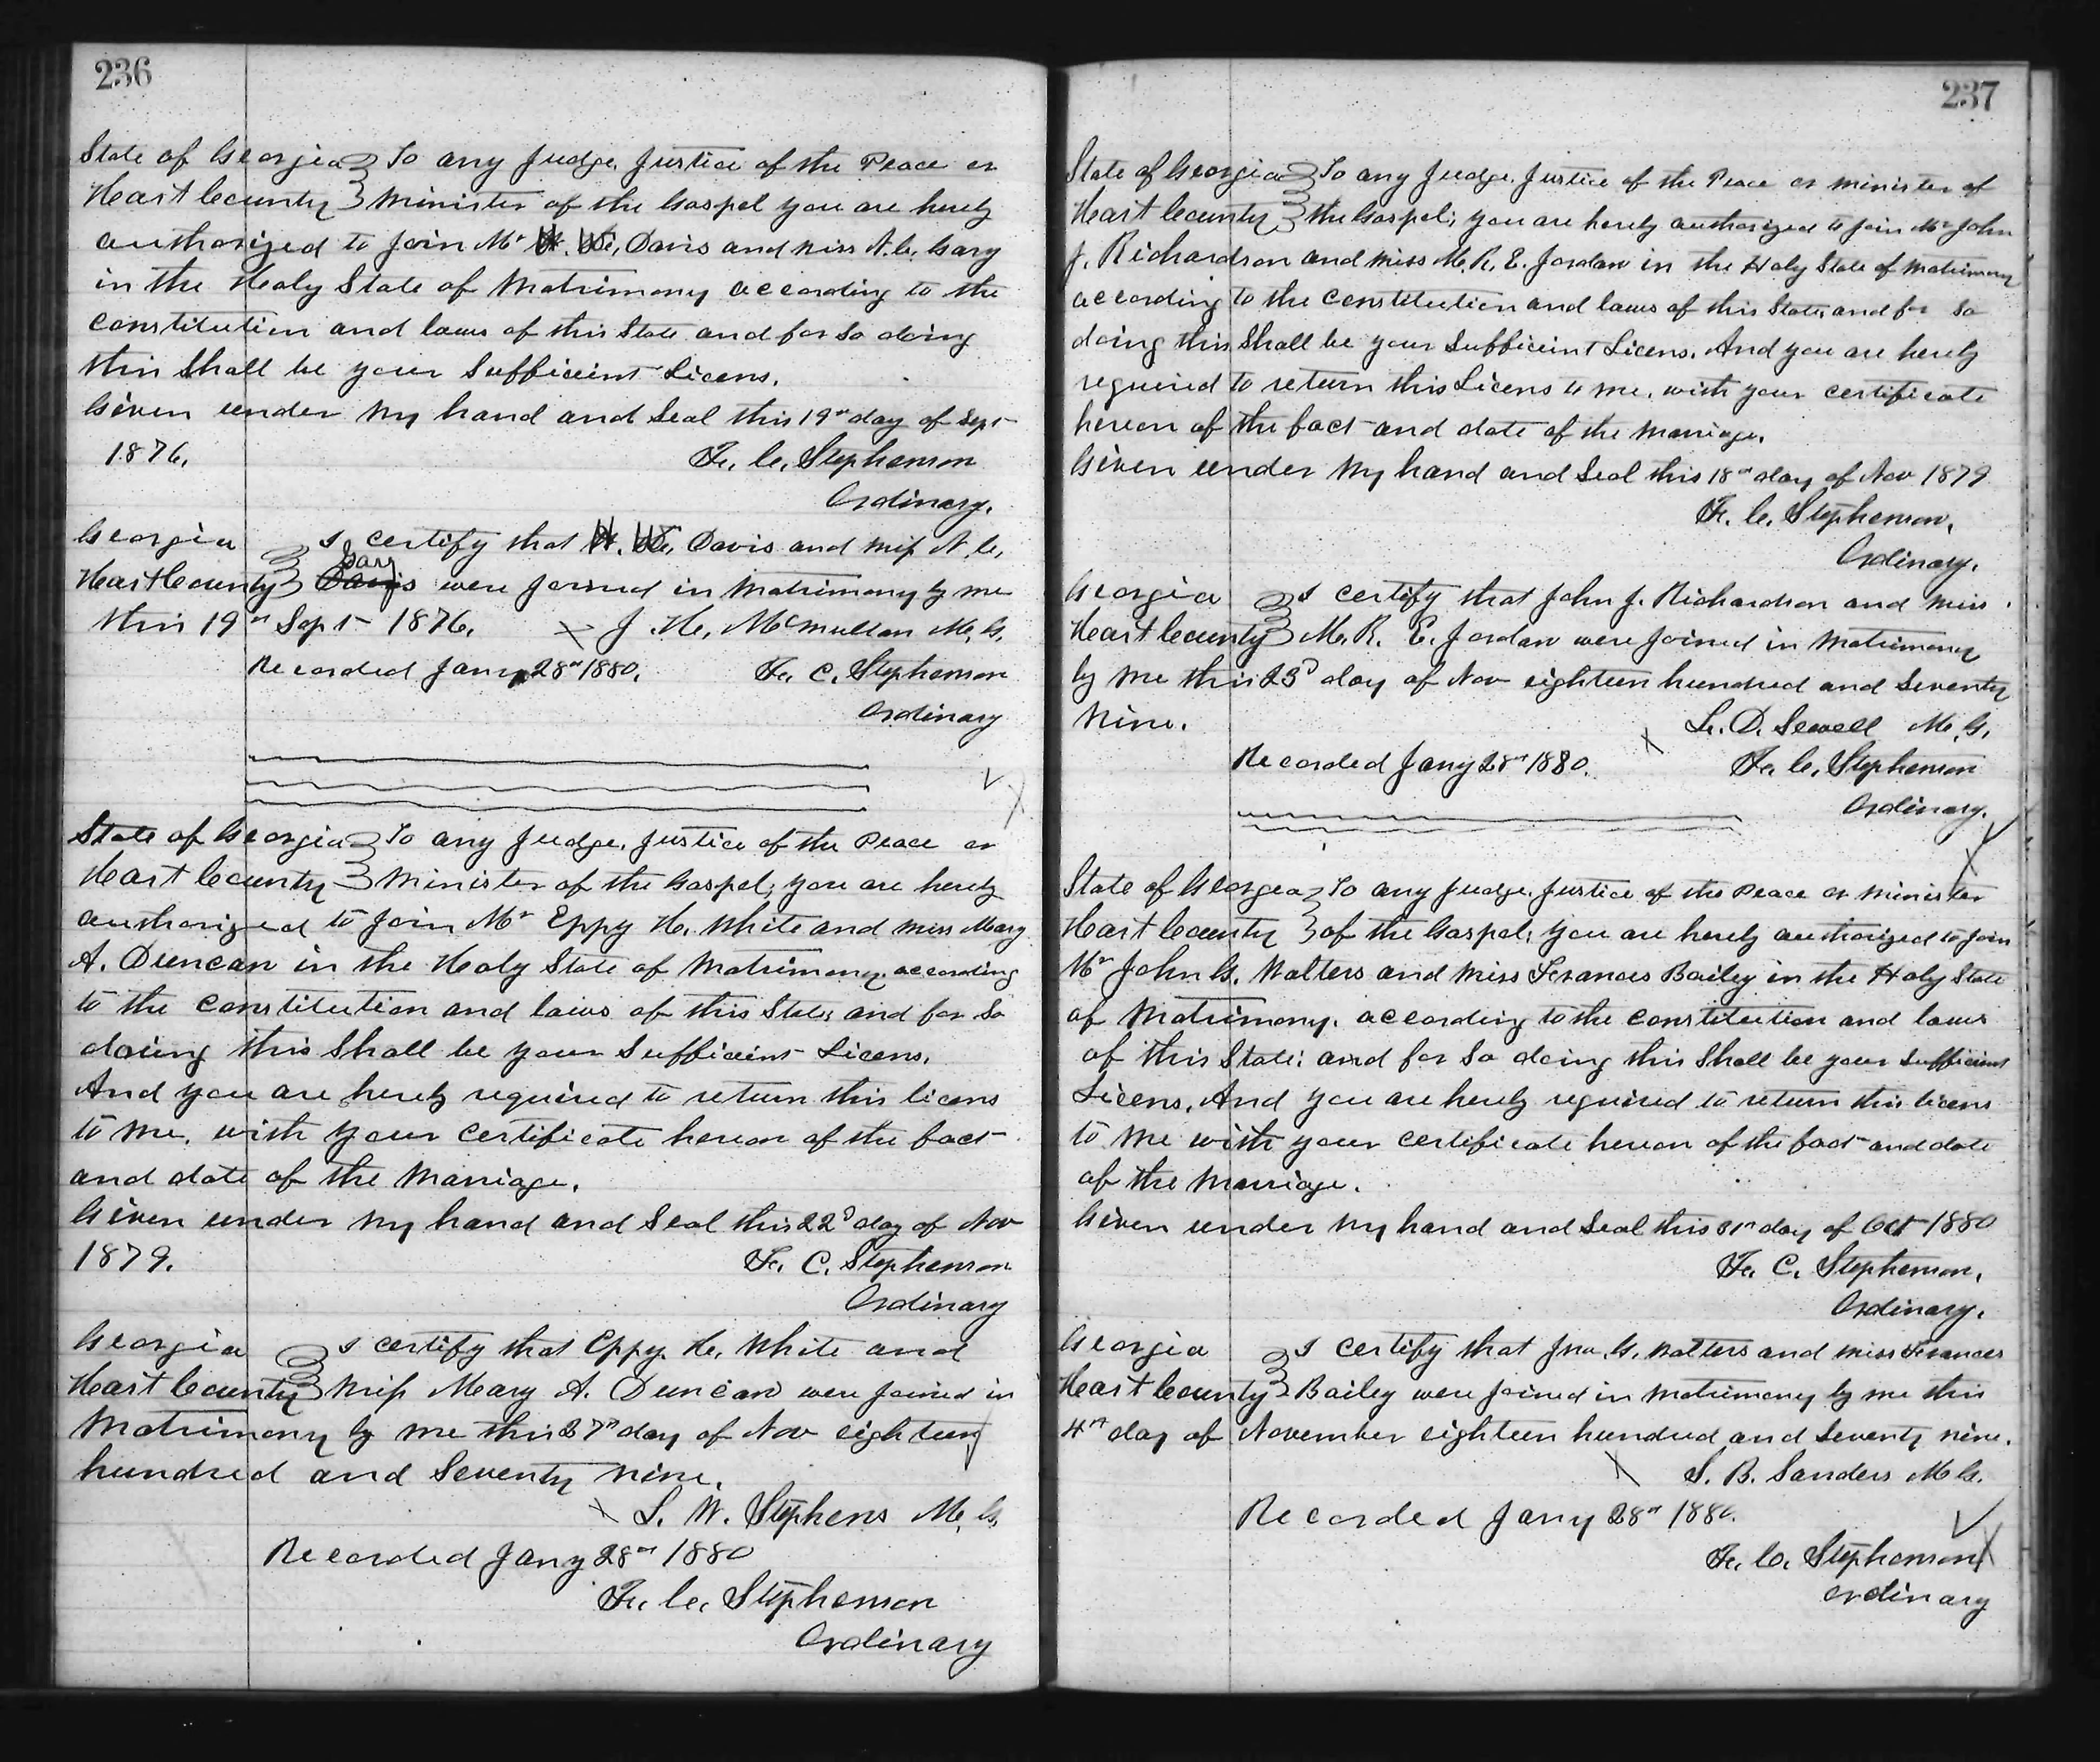 236
State of Georgia } To any Judge, Justice of the Peace or
Hart County } Minister of the Gospel you are hereby
authorized to join Mr Davis and Miss N. C. Gary
in the Holy State of Matrimony according to the
constitution and laws of this State and for so doing
this shall be your sufficient Licens.
Given under my hand and Seal this 19th day of Sept
1876. F. C. Stephenson
Ordinary.
Georgia } I certify that Davis and miss N. C.
Gary
Hart County } Davis were joined in Matrimony by me
this 19th Sept 1876. J. H. McMullan M. G.
Recorded Jany 28th 1880. F. C. Stephenson
Ordinary
State of Georgia } To any Judge, Justice of the Peace or
Hart County } Minister of the Gospel; you are hereby
authorized to join Mr Eppy H. White and Miss Mary
A. Duncan in the Holy State of Matrimony, according
to the constitution and laws of this State; and for so
doing this shall be your sufficient Licens.
And you are hereby required to return this licens
to me, with your certificate hereon of the fact
and date of the Marriage.
Given under my hand and Seal this 22d day of Nov
1879. F. C. Stephenson
Ordinary
Georgia } I certify that Eppy. H. White and
Hart County } miss Mary A. Duncan were joined in
Matrimony by me this 27th day of Nov eighteen
hundred and Seventy nine.
L. W. Stephens M. G.
Recorded Jany 28th 1880
F. C. Stephenson
Ordinary
237
State of Georgia } To any Judge, Justice of the Peace or minister of
Hart County } the Gospel; you are hereby authorized to join Mr John
J. Richardson and miss M. R. E. Jordan in the Holy State of Matrimony
according to the constitution and laws of this State, and for so
doing this shall be your sufficient Licens. And you are hereby
required to return this Licens to me, with your certificate
hereon of the fact and date of the marriage.
Given under my hand and Seal this 18th day of Nov 1879
F. C. Stephenson,
Ordinary.
Georgia } I certify that John J. Richardson and miss
Hart County } M. R. E. Jordan were joined in Matrimony
by me this 23d day of Nov eighteen hundred and Seventy
Nine. L. D. Sewell M. G.
Recorded Jany 28th 1880. F. C. Stephenson
Ordinary.
State of Georgia } To any Judge, Justice of the Peace or minister
Hart County } of the Gospel; you are hereby authorized to join
Mr John G. Walters and Miss Frances Bailey in the Holy State
of Matrimony, according to the constitution and laws
of this State: and for so doing this shall be your sufficient
Licens. And you are hereby required to return this licens
to me with your certificate hereon of the fact and date
of the Marriage.
Given under my hand and Seal this 31st day of Oct 1880
F. C. Stephenson,
Ordinary.
Georgia } I certify that Jno. G. Walters and miss Frances
Hart County } Bailey were joined in Matrimony by me this
4th day of November eighteen hundred and Seventy nine.
S. B. Sanders M G.
Recorded Jany 28th 1880.
F. C. Stephenson
Ordinary